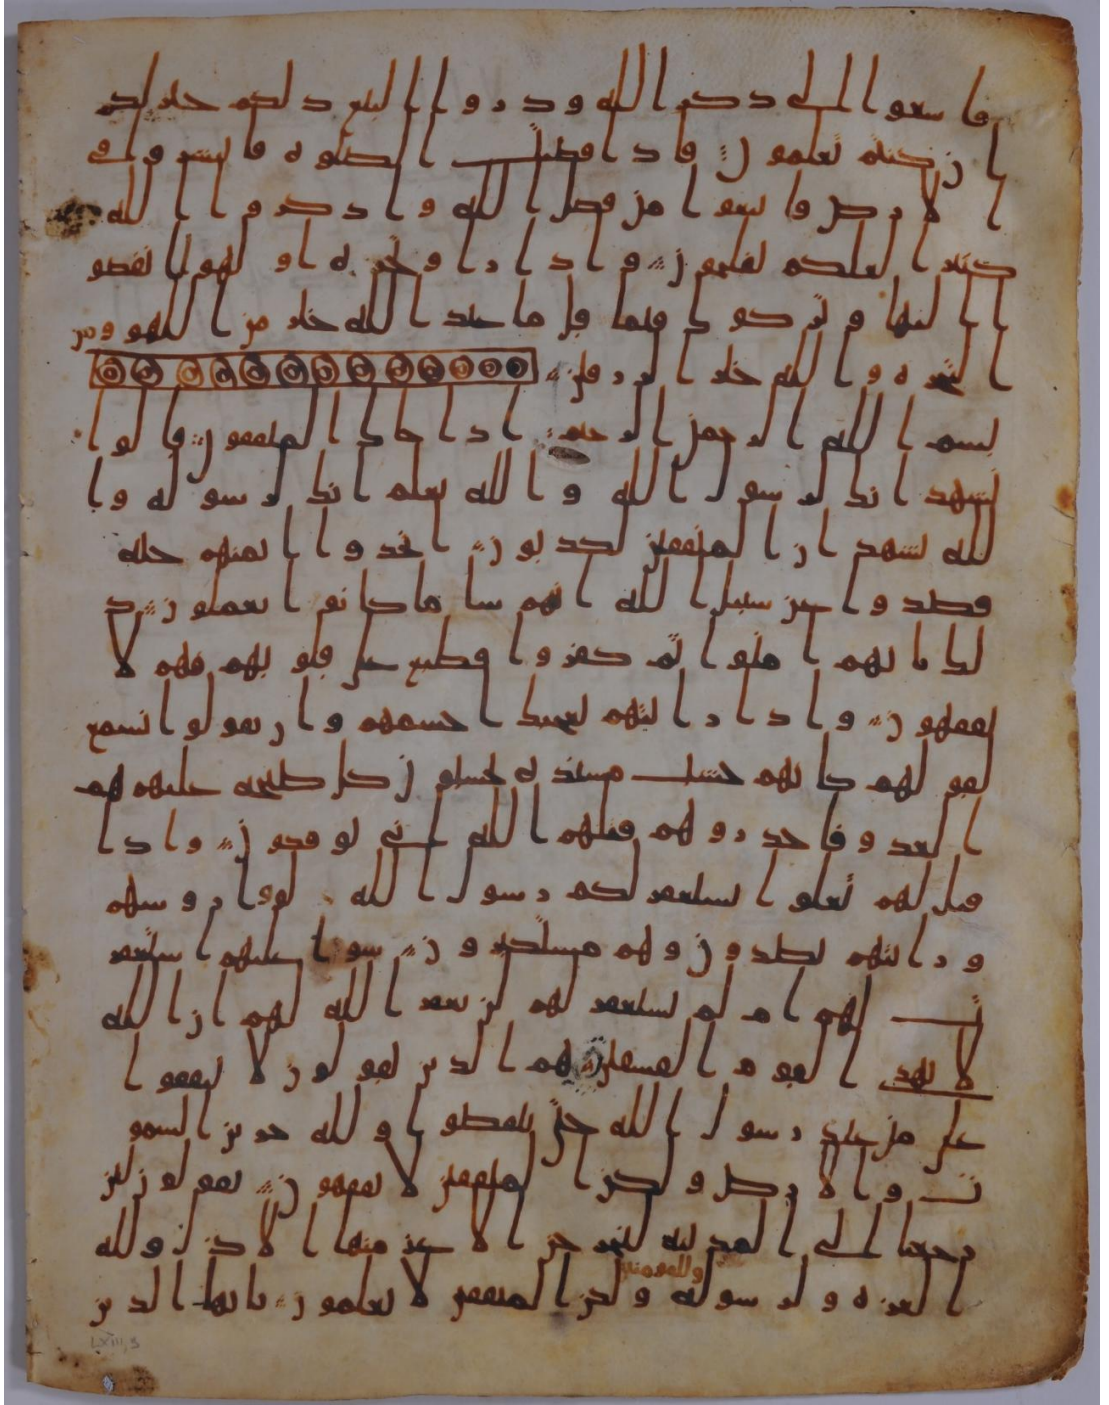 فاسعوا الى ذكر الله وذروا البيع ذلكم خير لكم
ان كنتم تعلمون فاذا قضيت الصلوه فانتشروا في
الارض وابتغوا من فضل الله واذكروا الله
كثيرا لعلكم تفلحون واذا راوا تجره او لهوا انفضوا
اليها وتركوك قيما قل ما عند الله خير من اللهو ومن
التجره والله خير الرزقين
بسم الله الرحمن الرحيم اذا جاك المنفقون قالوا
نشهد انك لرسول الله والله يعلم انك لرسوله وا
لله يشهد ان المنفقين لكذبون اتخذوا ايمنهم جنه
فصدوا عن سبيل الله انهم سا ما كانوا يعملون ذ
لك بانهم امنوا ثم كفروا فطبع على قلوبهم فهم لا
يفقهون واذا رايتهم تعجبك اجسمهم وان يقولوا تسمع
لقولهم كانهم خشب مسنده يحسبون كل صيحه عليهم هم
العدو فاحذرهم قتلهم الله انى يوفكون واذا
قيل لهم تعلوا يستغفر لكم رسول الله لووا روسهم
ورايتهم يصدون وهم مستكبرون سوا عليهم استغفر
ت لهم ام لم تستغفر لهم لن يغفر الله لهم ان الله
لا يهدي القوم الفسقين هم الذين يقولون لا تنفقوا
على من عند رسول الله حتى ينفضوا ولله خزين السمو
ت والارض ولكن المنفقين لا يفقهون يقولون لين
رجعنا الى المدينه ليخرجن الاعز منها الاذل ولله
وللمومنين
العزه ولرسوله ولكن المنفقين لا يعلمون يايها الذين
LXIII,9